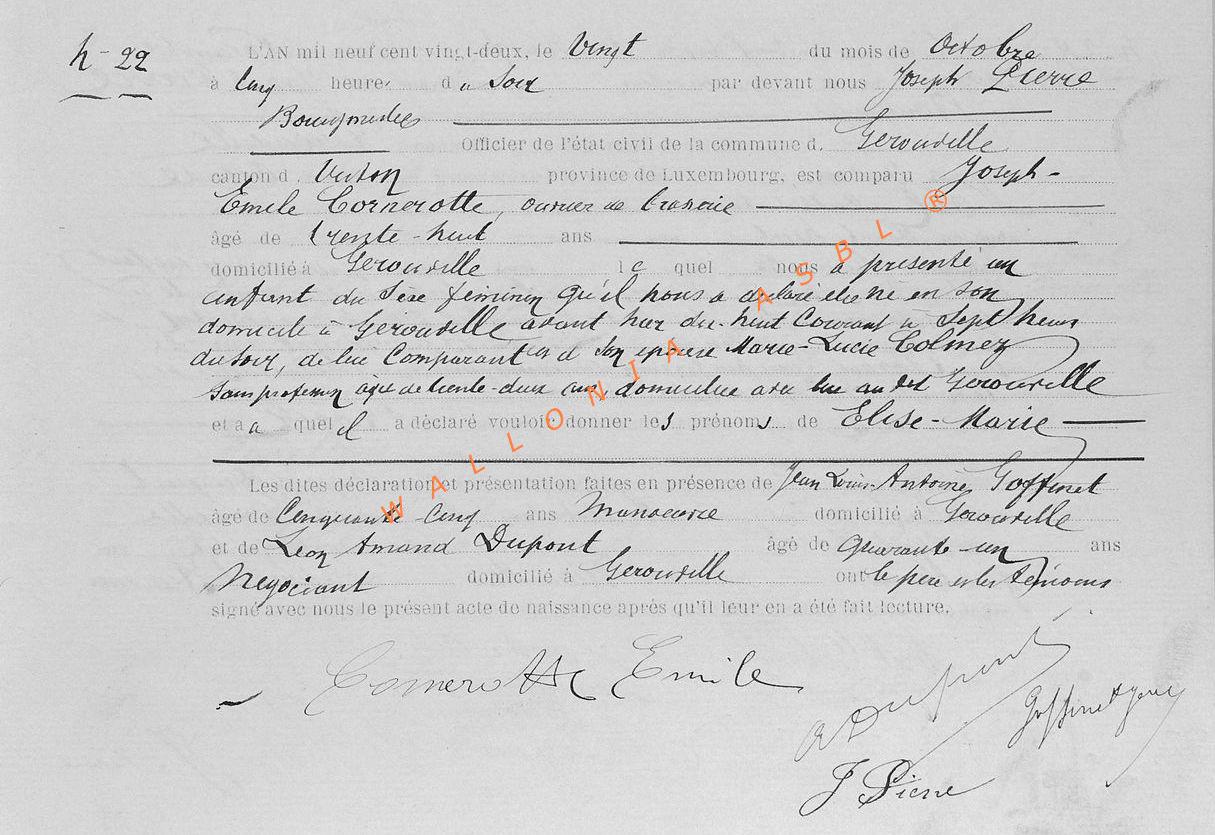 N- 22
L'AN mil neuf cent vingt-deux, le Vingt du mois de Octobre
à Cinq heures du Soir par devant nous Joseph Pierre
Bourgmestre
Officier de l'état civil de la commune d. Gerouville
canton d. Virton province de Luxembourg, est comparu Joseph-
Emile Cornerotte, ouvrier de brasserie
âgé de trente-huit ans
domicilié à Gerouville le quel nous a présenté un
enfant du sexe féminin qu'il nous a déclaré être né en son
domicile à Gerouville avant hier dix-huit Courant à Sept heures
du soir, de lui Comparant et d son épouse Marie-Lucie Colmez
Sans profession âgée de trente-deux ans domiciliée avec lui au dit Gerouville
et a a quel il a déclaré vouloir donner les prénoms de Elise-Marie
Les dites déclaration et présentation faites en présence de Jean Louis-Antoine Goffinet
âgé de Cinquante Cinq ans Manoeuvre domicilié à Gerouville
et de Léon Amand Dupont âgé de quarante-un ans
Négociant domicilié à Gerouville ont le père et les témoins
signé avec nous le présent acte de naissance après qu'il leur en a été fait lecture.
Cornerotte Emile
A Dupont
Goffinet
J Pierre
WALLONIA ASBL ®